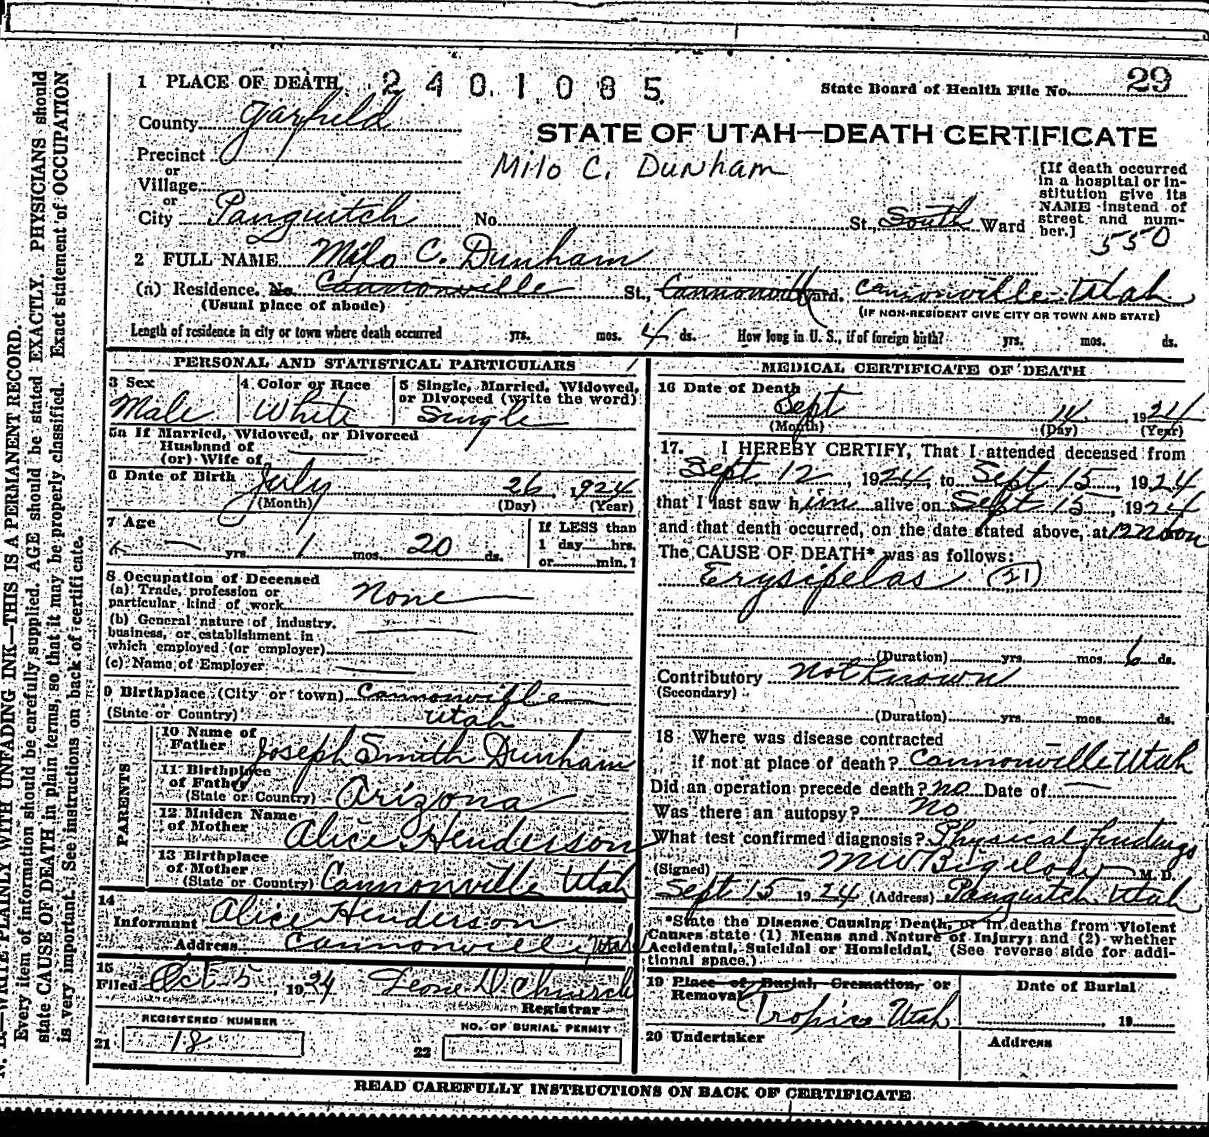 1 PLACE OF DEATH 2401085 State Board of Health File No. 29
County Garfield
STATE OF UTAH—DEATH CERTIFICATE
Precinct
or
Village
or
Milo C. Dunham
[If death occurred
in a hospital or in-
stitution give its
NAME instead of
street and num-
ber.]
550
City Panguitch No. St., South Ward
2 FULL NAME Milo C. Dunham
(a) Residence. No. Cannonville St., Cannonville Ward. Cannonville Utah
(Usual place of abode) (IF NON-RESIDENT GIVE CITY OR TOWN AND STATE)
Length of residence in city or town where death occurred yrs. mos. 4 ds. How long in U. S., if of foreign birth? yrs. mos. ds.
PERSONAL AND STATISTICAL PARTICULARS
3 Sex
Male
4 Color or Race
White
5 Single, Married, Widowed,
or Divorced (write the word)
Single
5a If Married, Widowed, or Divorced
Husband of
(or) Wife of
6 Date of Birth July 26, 1924
(Month) (Day) (Year)
7 Age
— yrs. 1 mos. 20 ds.
If LESS than
1 day hrs.
or min.?
8 Occupation of Deceased
(a) Trade, profession or
particular kind of work None
(b) General nature of industry,
business, or establishment in
which employed (or employer)
(c) Name of Employer
9 Birthplace (City or town) Cannonville
(State or Country) Utah
PARENTS
10 Name of
Father Joseph Smith Dunham
11 Birthplace
of Father
(State or Country) Arizona
12 Maiden Name
of Mother Alice Henderson
13 Birthplace
of Mother
(State or Country) Cannonville Utah
14
Informant Alice Henderson
Address Cannonville, Utah
15
Filed Oct 5, 1924 D. Church
Registrar
REGISTERED NUMBER
21 18
NO. OF BURIAL PERMIT
22
MEDICAL CERTIFICATE OF DEATH
16 Date of Death
Sept 14 1924
(Month) (Day) (Year)
17. I HEREBY CERTIFY, That I attended deceased from
Sept 12, 1924, to Sept 15, 1924
that I last saw him alive on Sept 15, 1924
and that death occurred, on the date stated above, at 12 noon
The CAUSE OF DEATH* was as follows:
Erysipelas (21)
(Duration) yrs. mos. 6 ds.
Contributory not known
(Secondary)
(Duration) yrs. mos. ds.
18 Where was disease contracted
if not at place of death? Cannonville Utah
Did an operation precede death? no Date of —
Was there an autopsy? no
What test confirmed diagnosis? Physical findings
(Signed) M W Bigelow M. D.
Sept 15 1924 (Address) Panguitch Utah
*State the Disease Causing Death, or in deaths from Violent
Causes state (1) Means and Nature of Injury; and (2) whether
Accidental, Suicidal or Homicidal. (See reverse side for addi-
tional space.)
19 Place of Burial, Cremation, or
Removal
Tropic Utah
Date of Burial
, 19
20 Undertaker
Address
READ CAREFULLY INSTRUCTIONS ON BACK OF CERTIFICATE
N. B.—WRITE PLAINLY WITH UNFADING INK—THIS IS A PERMANENT RECORD.
Every item of information should be carefully supplied. AGE should be stated EXACTLY. PHYSICIANS should
state CAUSE OF DEATH in plain terms, so that it may be properly classified. Exact statement of OCCUPATION
is very important. See instructions on back of certificate.